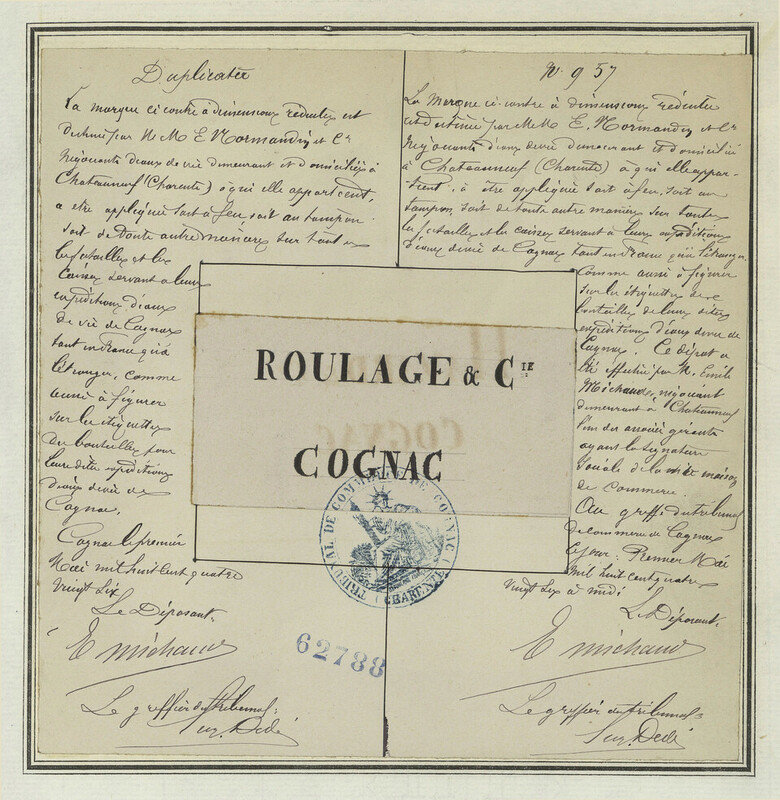 Duplicata
La marque ci contre à dimensions réduites est
destinée par M M E. Normandin et Cie
Négociants d'eaux de vie demeurant et domiciliés à
Chateauneuf (Charente) à qui elle appartient,
a etre appliquée soit à feu, soit au tampon
soit de toute autre manière sur toutes
les futailles et les
caisses servant à leurs
expéditions d'eaux
de vie de Cognac
tant en France qu'à
l'étranger, comme
aussi à figurer
sur les étiquettes
des bouteilles pour
leurs dites expéditions
d'eaux de vie de
Cognac.
Cognac le premier
Mai mil huit cent quatre
vingt six
Le Déposant,
E Michaud
Le greffier du tribunal
N. 957
La Marque ci-contre à dimensions réduites
est destinée par M M E. Normandin et Cie
Négociants d'eaux de vie demeurant et domiciliés
à Chateauneuf (Charente) à qui elle appar-
tient, à être appliquée soit à feu, soit au
tampon, soit de toute autre manière sur toutes
les futailles et les caisses servant à leurs expéditions
d'eaux de vie de Cognac tant en France qu'à l'étranger
comme aussi à figurer
sur les étiquettes des
bouteilles de leurs dites
expéditions d'eaux de vie de
Cognac. Ce dépôt a
été effectué par M. Emile
Michaud, négociant
demeurant à Chateauneuf
l'un des associés gérants
ayant la signature
sociale de la dite maison
de commerce.
Au greffe du tribunal
de commerce de Cognac
le jour Premier Mai
mil huit cent quatre
vingt six à midi
Le Déposant,
E Michaud
Le greffier du tribunal
ROULAGE & CIE
COGNAC
TRIBUNAL DE COMMERCE DE COGNAC
(CHARENTE)
62788